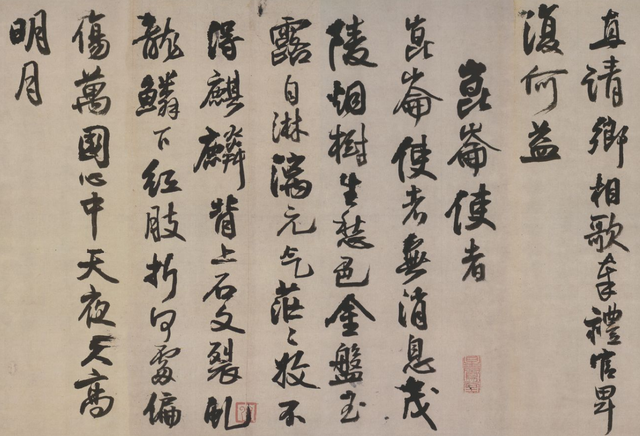 直請卿相歌奉禮官卑
復何益
崑崙使者
崑崙使者無消息茂
陵烟樹生愁色金盤玉
露自淋漓元气茫〻收不
得麒麟背上石文裂虬
龍鱗下紅肢折何處偏
傷萬國心中天夜久高
明月